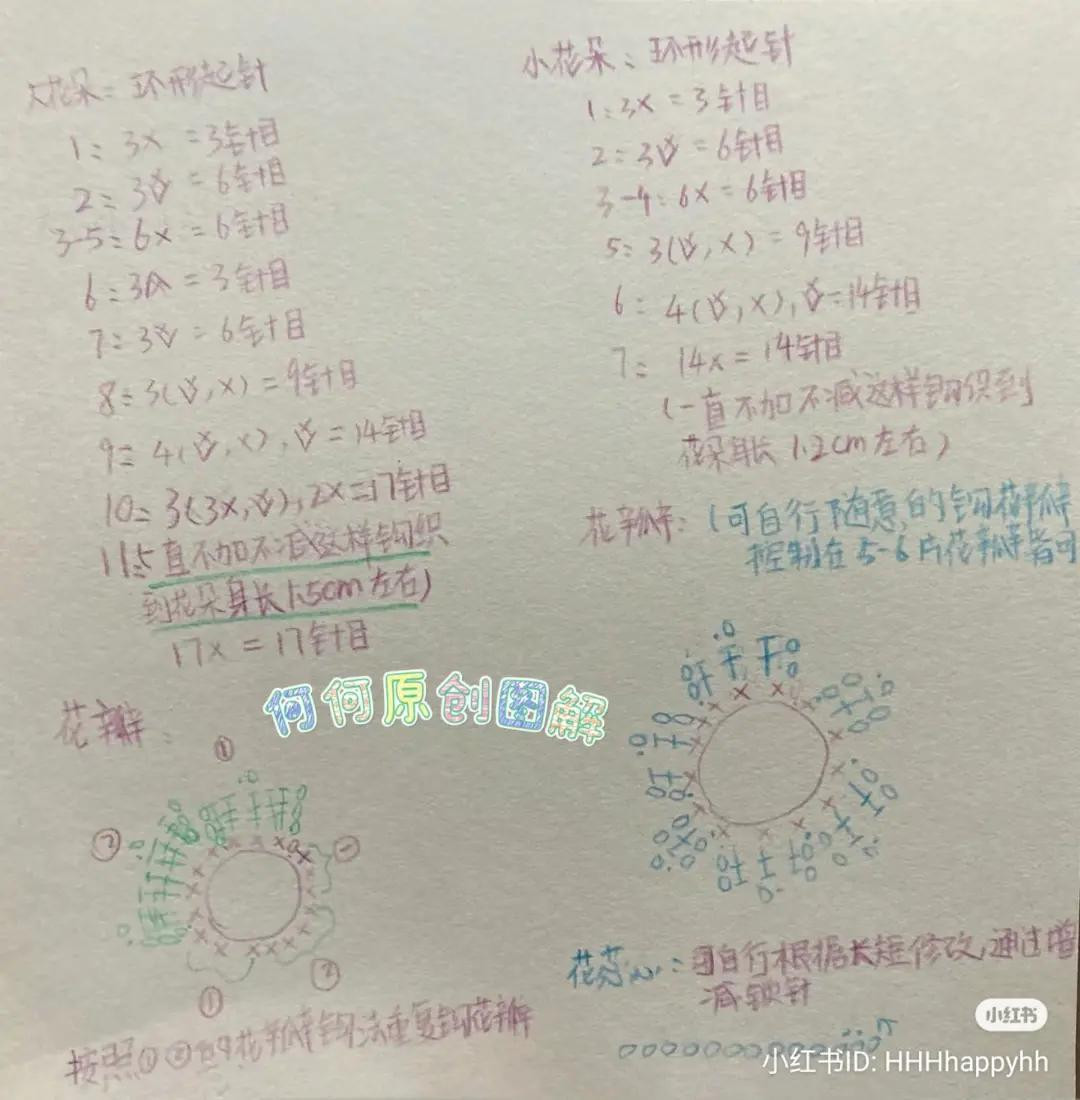 大花朵：环形起针
1：3X＝3针目
2：3V＝6针目
3-5：6X＝6针目
6：3A＝3针目
7：3V＝6针目
8：3(V,X)＝9针目
9：4(V,X),V＝14针目
10：3(3X,V),2X＝17针目
11：(一直不加不减这样钩织
到花朵身长1.5cm左右)
17X＝17针目
花瓣：
①
②
①
②
①
按照①②的花瓣钩法重复钩花瓣
小花朵：环形起针
1：3X＝3针目
2：3V＝6针目
3-4：6X＝6针目
5：3(V,X)＝9针目
6：4(V,X),V＝14针目
7：14X＝14针目
(一直不加不减这样钩织到
花朵身长1.2cm左右)
花瓣：(可自行随意的钩花瓣
控制在5-6片花瓣皆可
花蕊心：可自行根据长短修改,通过增
减锁针
何何原创图解
小红书
小红书ID: HHHhappyhh